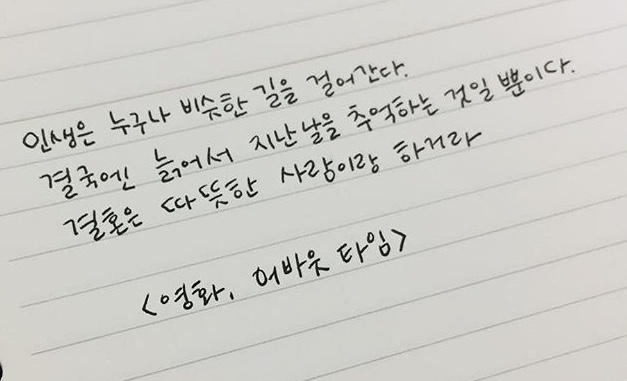 인생은 누구나 비슷한 길을 걸어간다.
결국엔 늙어서 지난날을 추억하는 것일 뿐이다.
결혼은 따뜻한 사람이랑 하거라
<영화, 어바웃 타임>